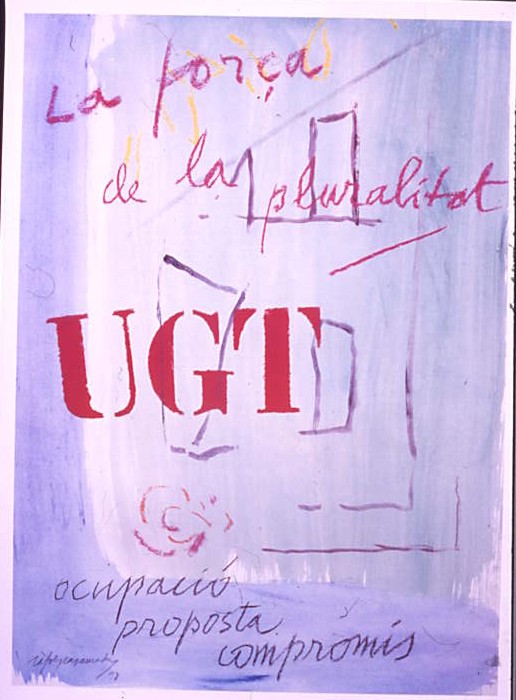 La força
de la pluralitat
UGT
ocupació
proposta
compromís